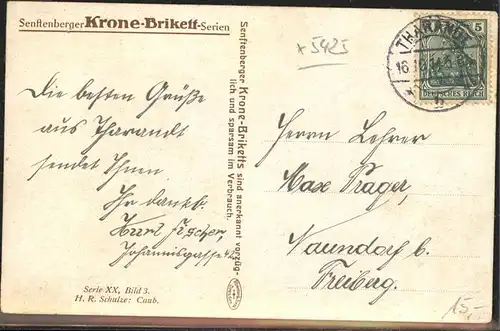 Senftenberger Krone-Brikett-Serien
+5425
THARANDT
5
DEUTSCHES REICH
Die besten Grüße
aus Tharandt
sendet Ihnen
Ihr dankb.
Kurt Fischer,
Johannisgasse
Senftenberger Krone-Briketts sind anerkannt vorzüg-
lich und sparsam im Verbrauch.
Herrn Lehrer
Max Prager,
Naundorf b.
Freiberg.
Serie XX, Bild 3.
H. R. Schulze: Caub.
15,-